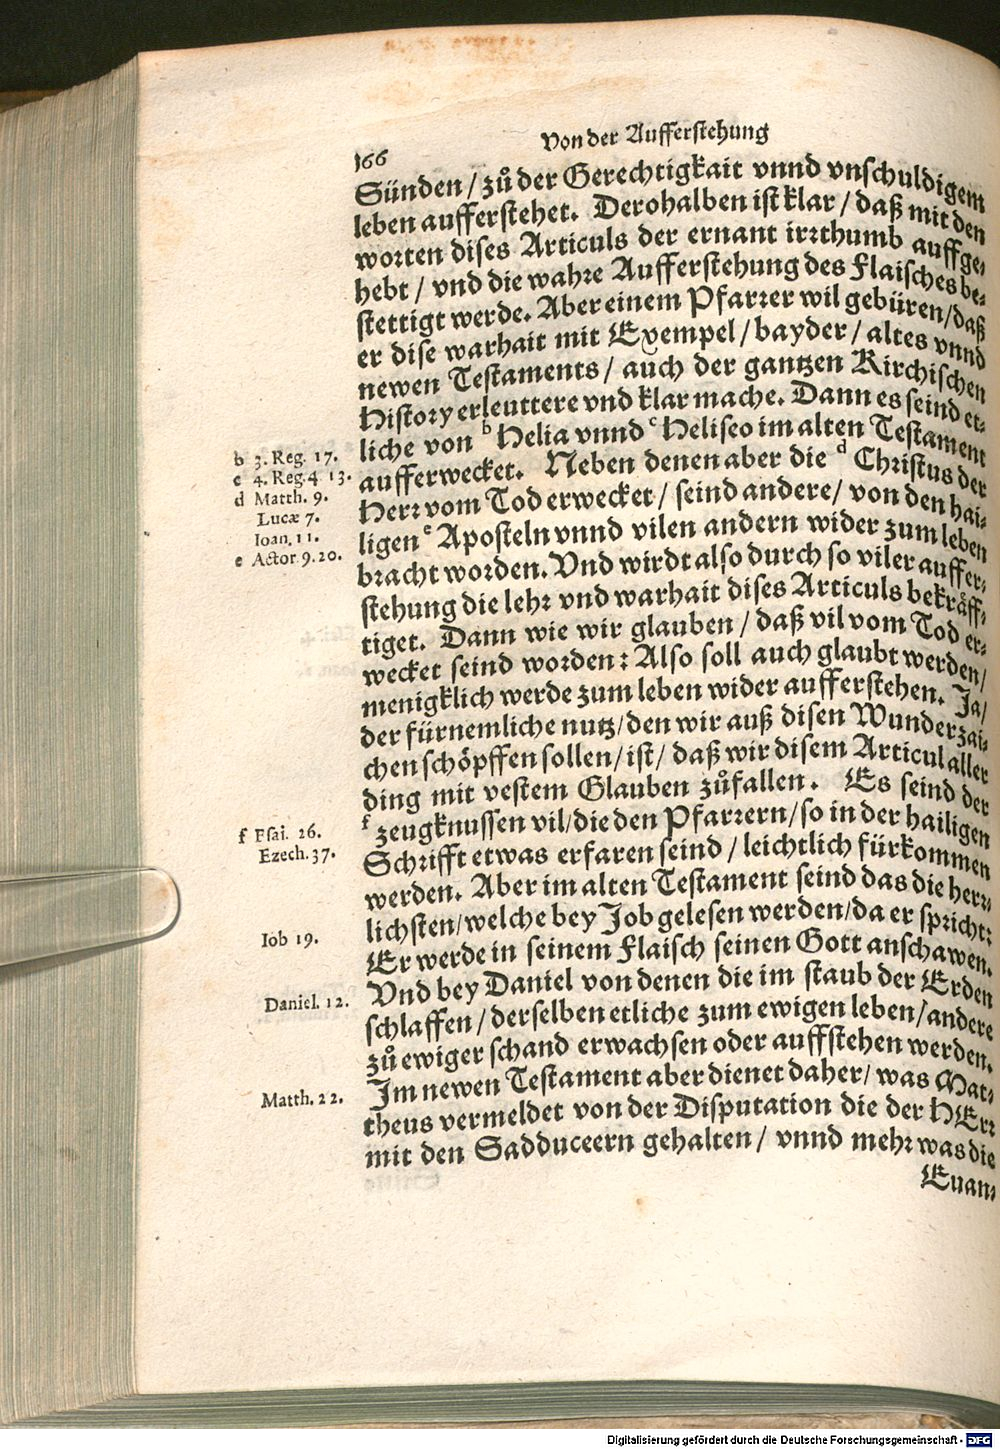 166
Von der Aufferstehung
Sünden / zů der Gerechtigkait vnnd vnschuldigem
leben aufferstehet. Derohalben ist klar / daß mit den
worten dises Articuls der ernant irrthumb auffge-
hebt / vnd die wahre Aufferstehung des Flaisches be-
stettigt werde. Aber einem Pfarrer wil gebüren / daß
er dise warhait mit Exempel / bayder / altes vnnd
newen Testaments / auch der gantzen Kirchischen
History erleuttere vnd klar mache. Dann es seind et-
liche von b Helia vnnd c Heliseo im alten Testament
b 3. Reg. 17.
aufferwecket. Neben denen aber die d Christus der
c 4. Reg. 4 13.
Herr vom Tod erwecket / seind andere / von den hai-
d Matth. 9.
Lucæ 7.
ligen e Aposteln vnnd vilen andern wider zum leben
Ioan. 11.
bracht worden. Vnd wirdt also durch so viler auffer-
e Actor 9.20.
stehung die lehr vnd warhait dises Articuls bekräff-
tiget. Dann wie wir glauben / daß vil vom Tod er-
wecket seind worden : Also soll auch glaubt werden /
menigklich werde zum leben wider aufferstehen. Ja /
der fürnemliche nutz / den wir auß disen Wunderzai-
chen schöpffen sollen / ist / daß wir disem Articul aller
ding mit vestem Glauben zůfallen. Es seind der
f zeugknussen vil / die den Pfarrern / so in der hailigen
f Esai. 26.
Schrifft etwas erfaren seind / leichtlich fürkommen
Ezech. 37.
werden. Aber im alten Testament seind das die herr-
lichsten / welche bey Job gelesen werden / da er spricht:
Er werde in seinem Flaisch seinen Gott anschawen.
Iob 19.
Vnd bey Daniel von denen die im staub der Erden
Daniel. 12.
schlaffen / derselben etliche zum ewigen leben / andere
zů ewiger schand erwachsen oder auffstehen werden.
Im newen Testament aber dienet daher / was Mat-
Matth. 22.
theus vermeldet von der Disputation die der HErr
mit den Sadduceern gehalten / vnnd mehr was die
Euan-
Digitalisierung gefördert durch die Deutsche Forschungsgemeinschaft - DFG